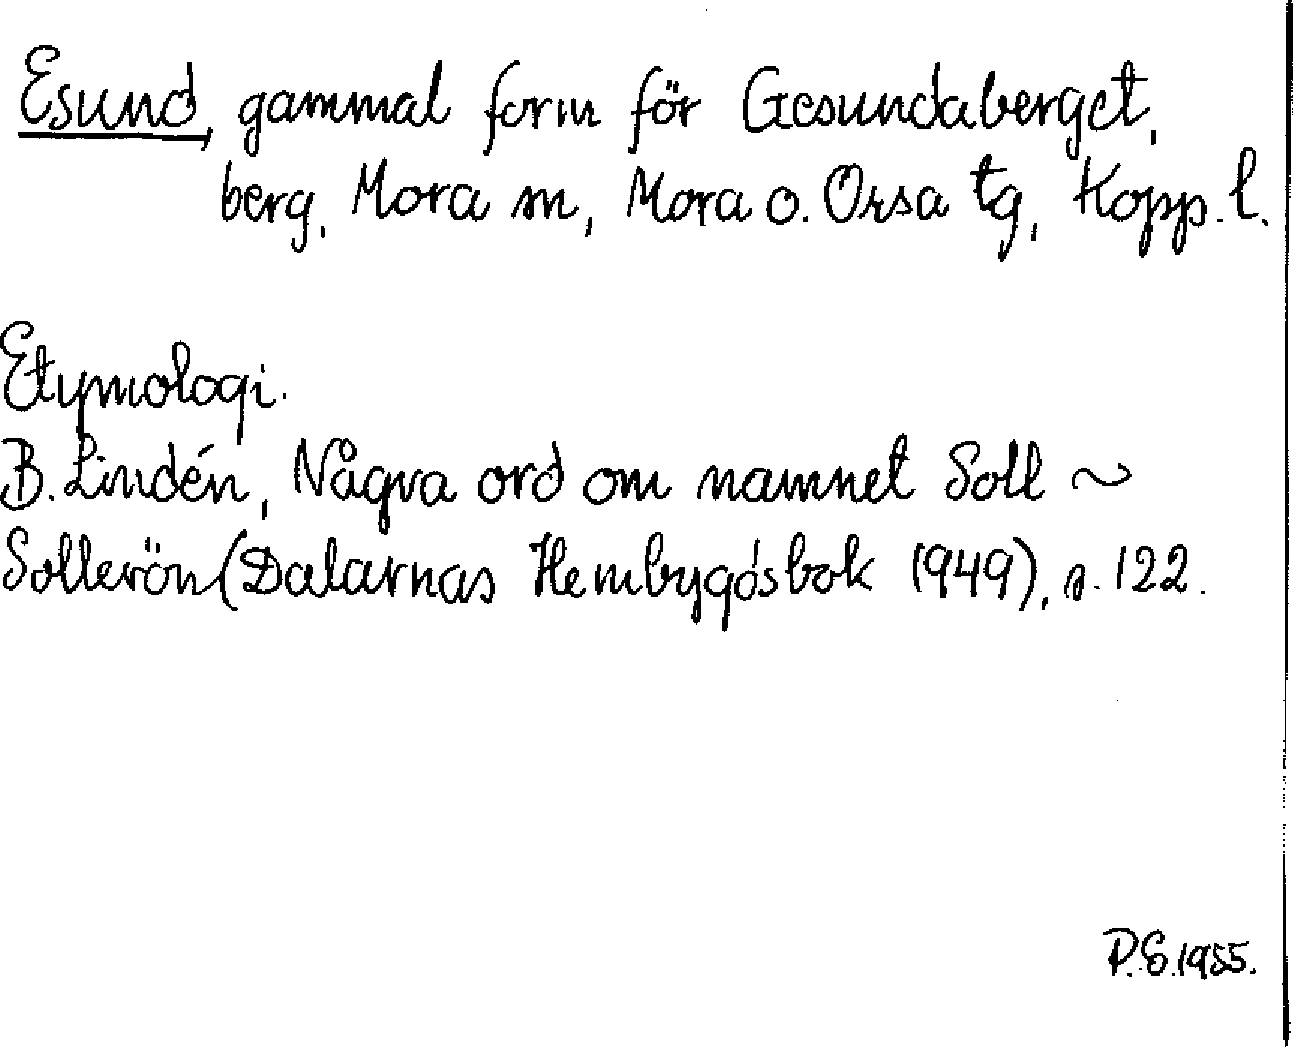 Esund, gammal form för Gesundaberget,
berg, Mora sn, Mora o. Orsa tg, Kopp. l.
Etymologi.
B. Lindén, Några ord om namnet Soll ~
Sollerön (Dalarnas Hembygdsbok 1949), s. 122.
P.S. 1955.